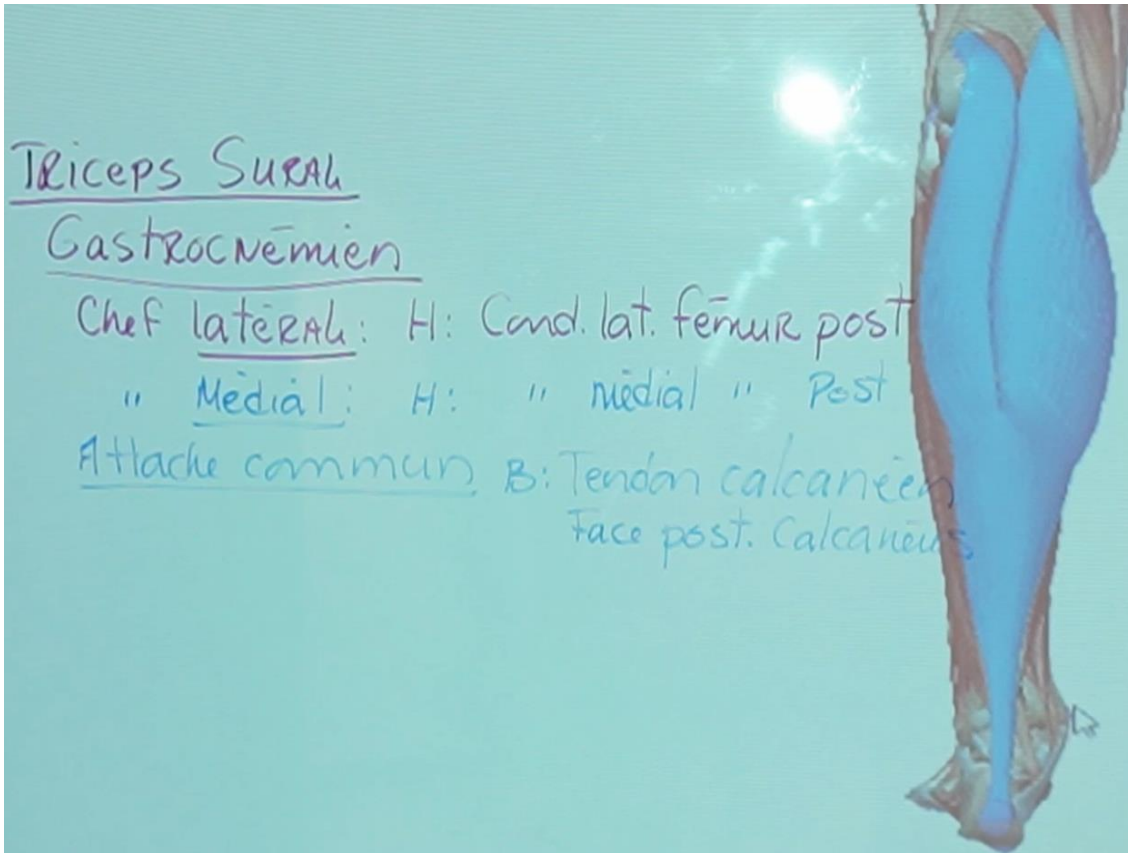 Triceps Sural
Gastrocnémien
Chef latéral : H : Cond. lat. fémur post
" Médial : H : " médial " Post
Attache commun B : Tendon calcanéen
Face post. Calcanéus